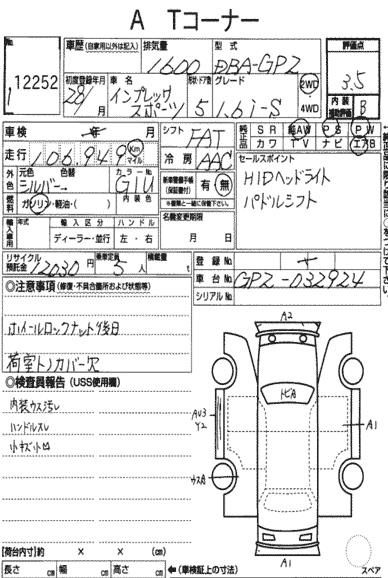 A Tコーナー
No. 12252
車歴 (自家用以外は記入)
排気量 1600
型式 DBA-GPZ
評価点 3.5
初度登録年月 28/1
車名 インプレッサスポーツ
ドア数 5
グレード 1.6i-S
2WD 4WD
内装補助評価 B
車検 年 月
シフト FAT
純正品 SR AW PS PW
カワ TV ナビ エアB
走行 106,949 Km マイル
冷房 AAC
セールスポイント
HIDヘッドライト
パドルシフト
外色 元色 シルバー 色替
カラーNo. G1U
内装色
燃料 ガソリン・軽油・( )
新車整備手帳 (保証書付) 有 無
輸入車用 年式 輸入区分 ハンドル
ディーラー・並行 左・右
名義変更期限
月 日
リサイクル預託金 12030 円
乗車定員 5 人
積載量 t
登録No.
車台No. GPZ-032924
シリアルNo.
◎注意事項 (修復・不具合箇所および状態等)
ホイールロックナット後日
荷室トノカバー欠
◎検査員報告 (USS使用欄)
内装ウス汚レ
ハンドルスレ
小キズ小凹
A2
トビA
AU3
Y2
A1
ウスA
A1
[荷台内寸] 約 × × (cm)
長さ cm 幅 cm 高さ cm
← (車検証上の寸法)
スペア